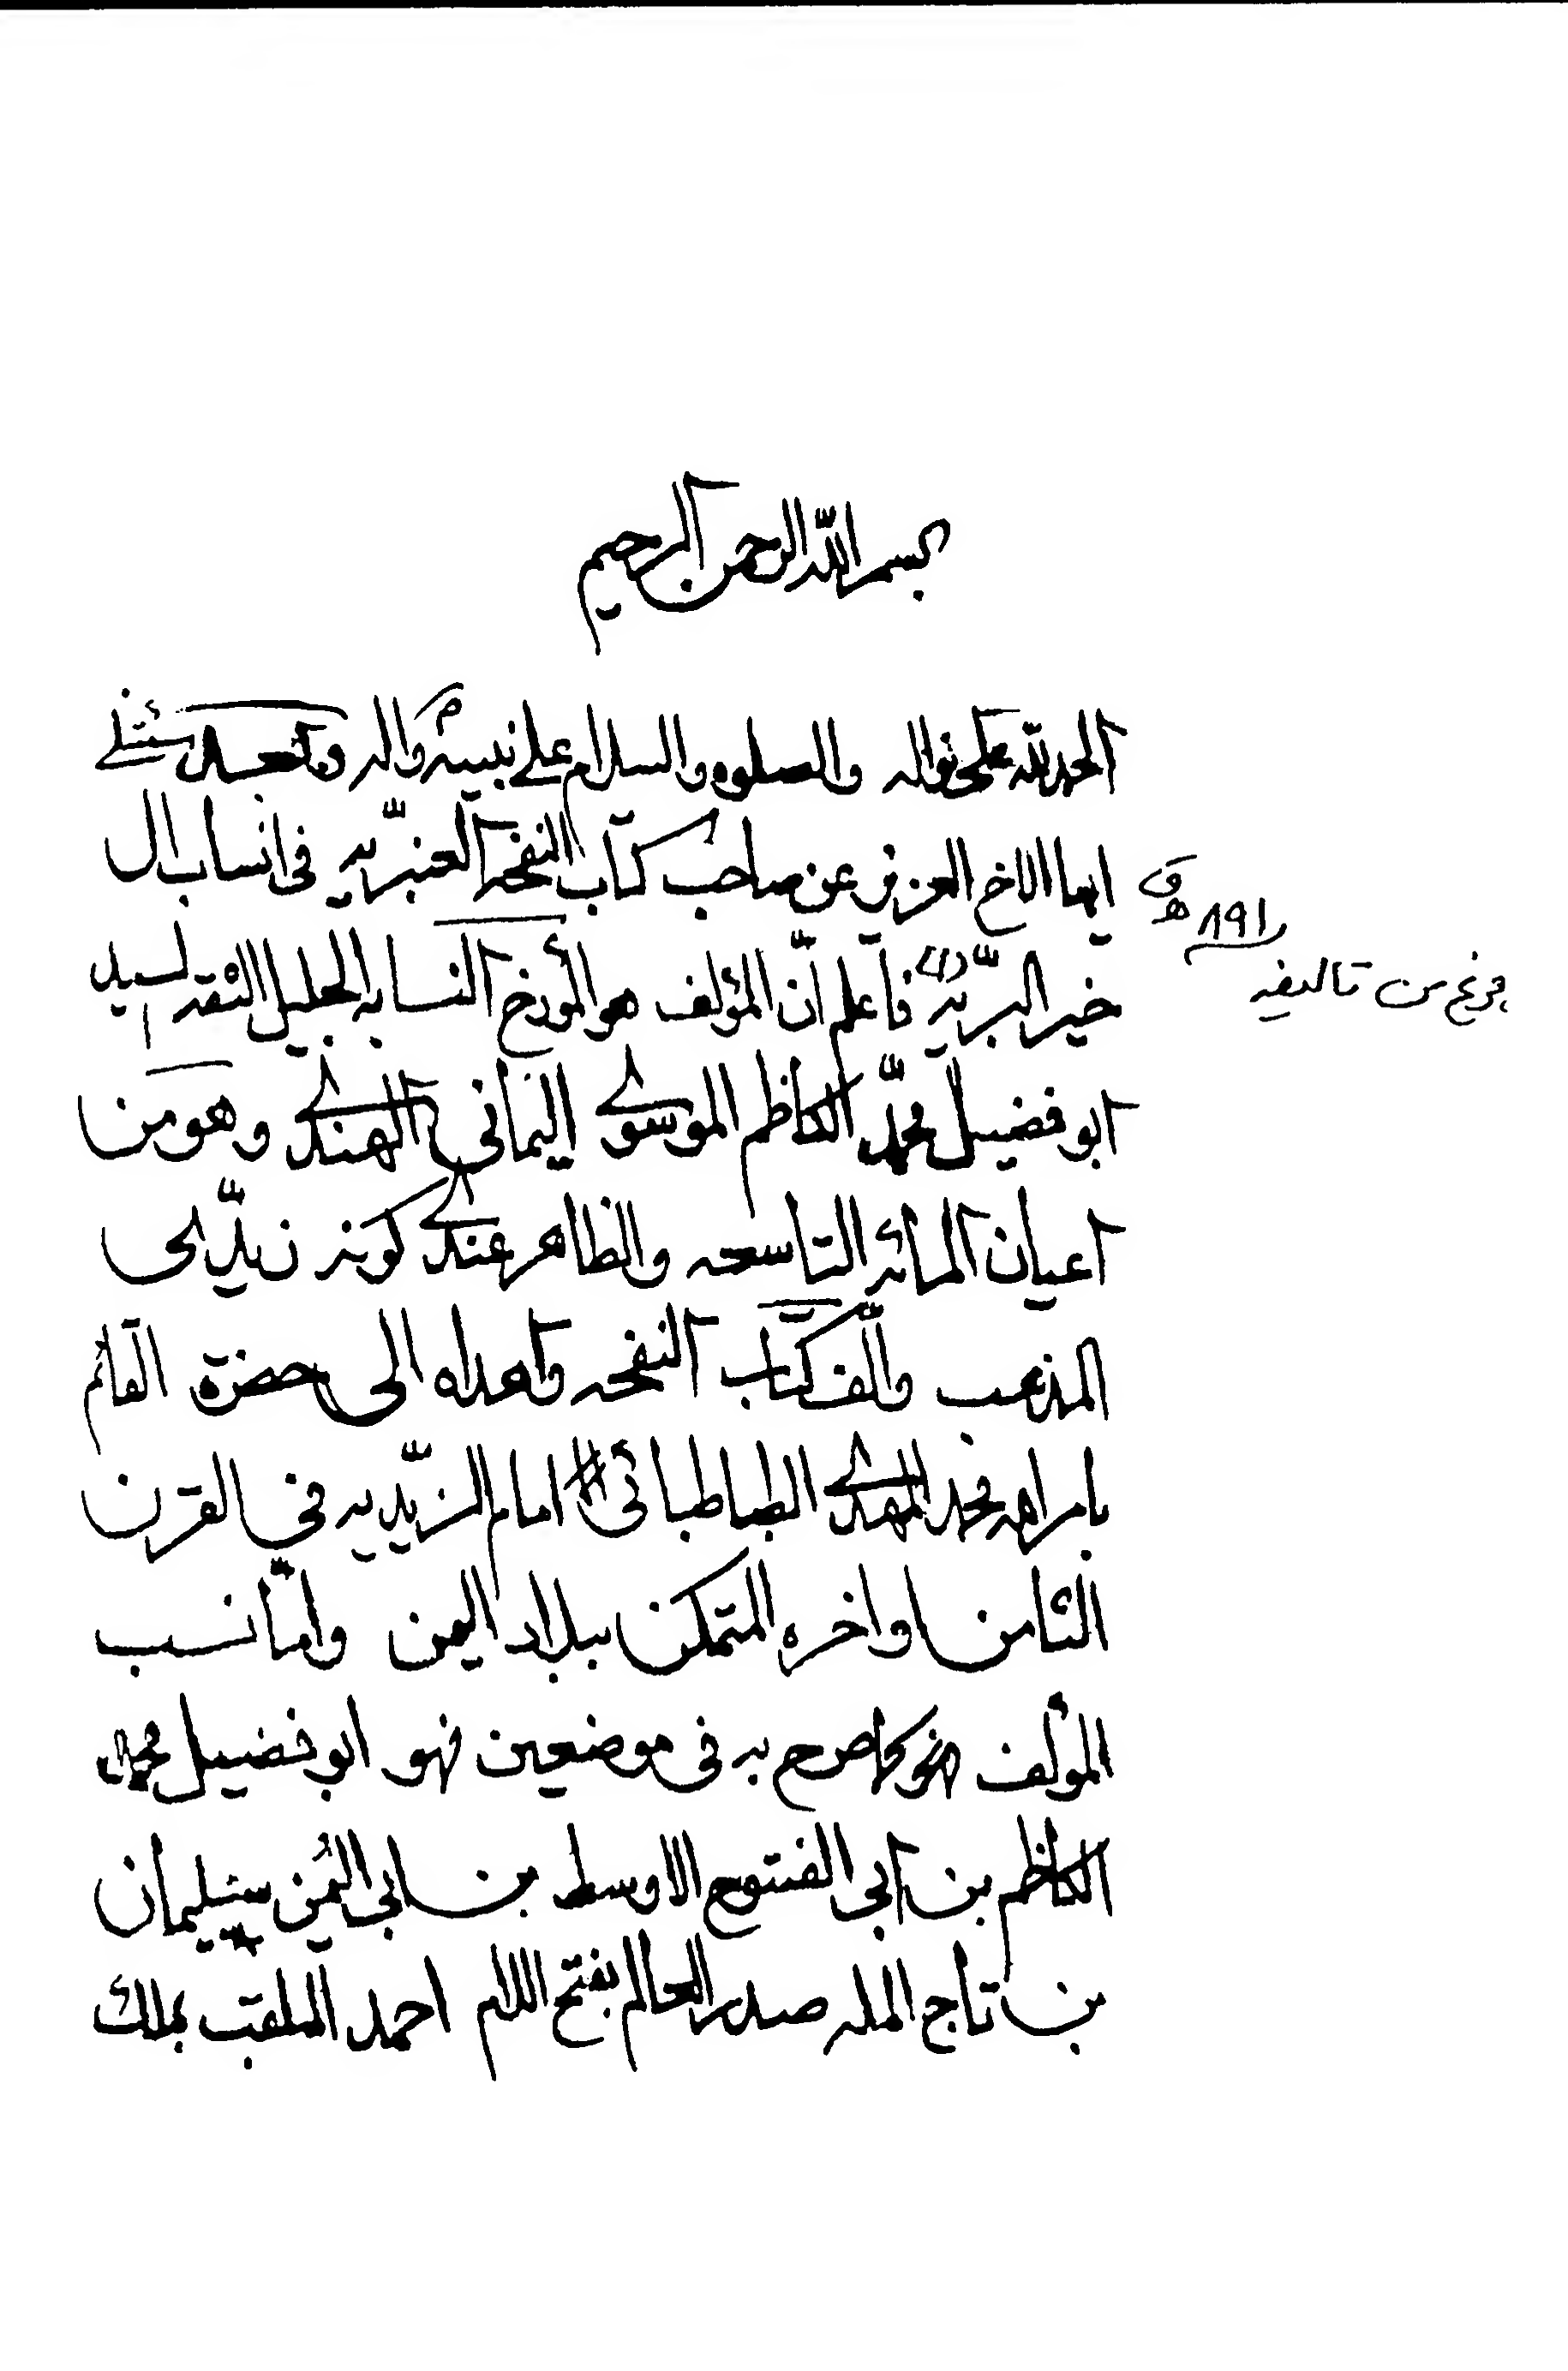 بسم الله الرحمن الرحيم
الحمد لله على نواله والصلوه والسلام على نبيه وآله وبعد سئلتنى
ايها الاخ العزيز عن صاحب كتاب النفحه العنبريّه فى انساب ال
خير البريّه (١) فاعلم انّ المؤلف هو المؤرخ النسابه الجليل الثقه السيد
ابو فضيل محمّد الكاظم الموسوى اليمانى الهندى وهو من
اعيان المائه التاسعه والظاهر عندى كونه زيدّى
المذهب والّف كتاب النفحه واهداه الى حضرة القائم
بامر الله محمد المهدى الطباطبائى امام الزيّديه فى القرن
الثامن اواخره المتمكن ببلاد اليمن وامّا نسب
المؤلف كما صرح به فى موضعين فهو ابو فضيل محمد
الكاظم بن ابى الفتوح الاوسط بن ابى اليُمن سليمان
بن تاج المله صدر العالم بفتح اللام احمد الملقب بملك
٨٩١ ه ق
فرغ من تاليفه